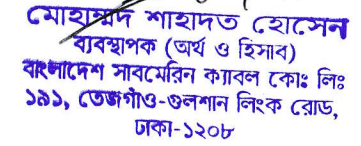 মোহাম্মদ শাহাদত হোসেন
ব্যবস্থাপক (অর্থ ও হিসাব)
বাংলাদেশ সাবমেরিন ক্যাবল কোঃ লিঃ
১৯১, তেজগাঁও-গুলশান লিংক রোড,
ঢাকা-১২০৮